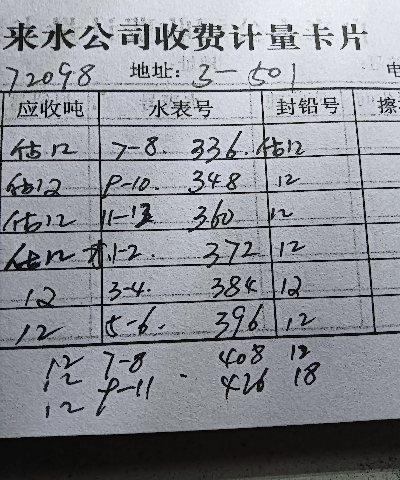 来水公司收费计量卡片
72098 地址: 3-501 电
应收吨 水表号 封铅号 擦
估12 7-8. 336. 估12
估12 9-10. 348 12
估12 11-12 360 12
估12 1-2. 372 12
12 3-4. 384 12
12 5-6. 396 12
12 7-8 408 12
12 9-11 - 426 18
12